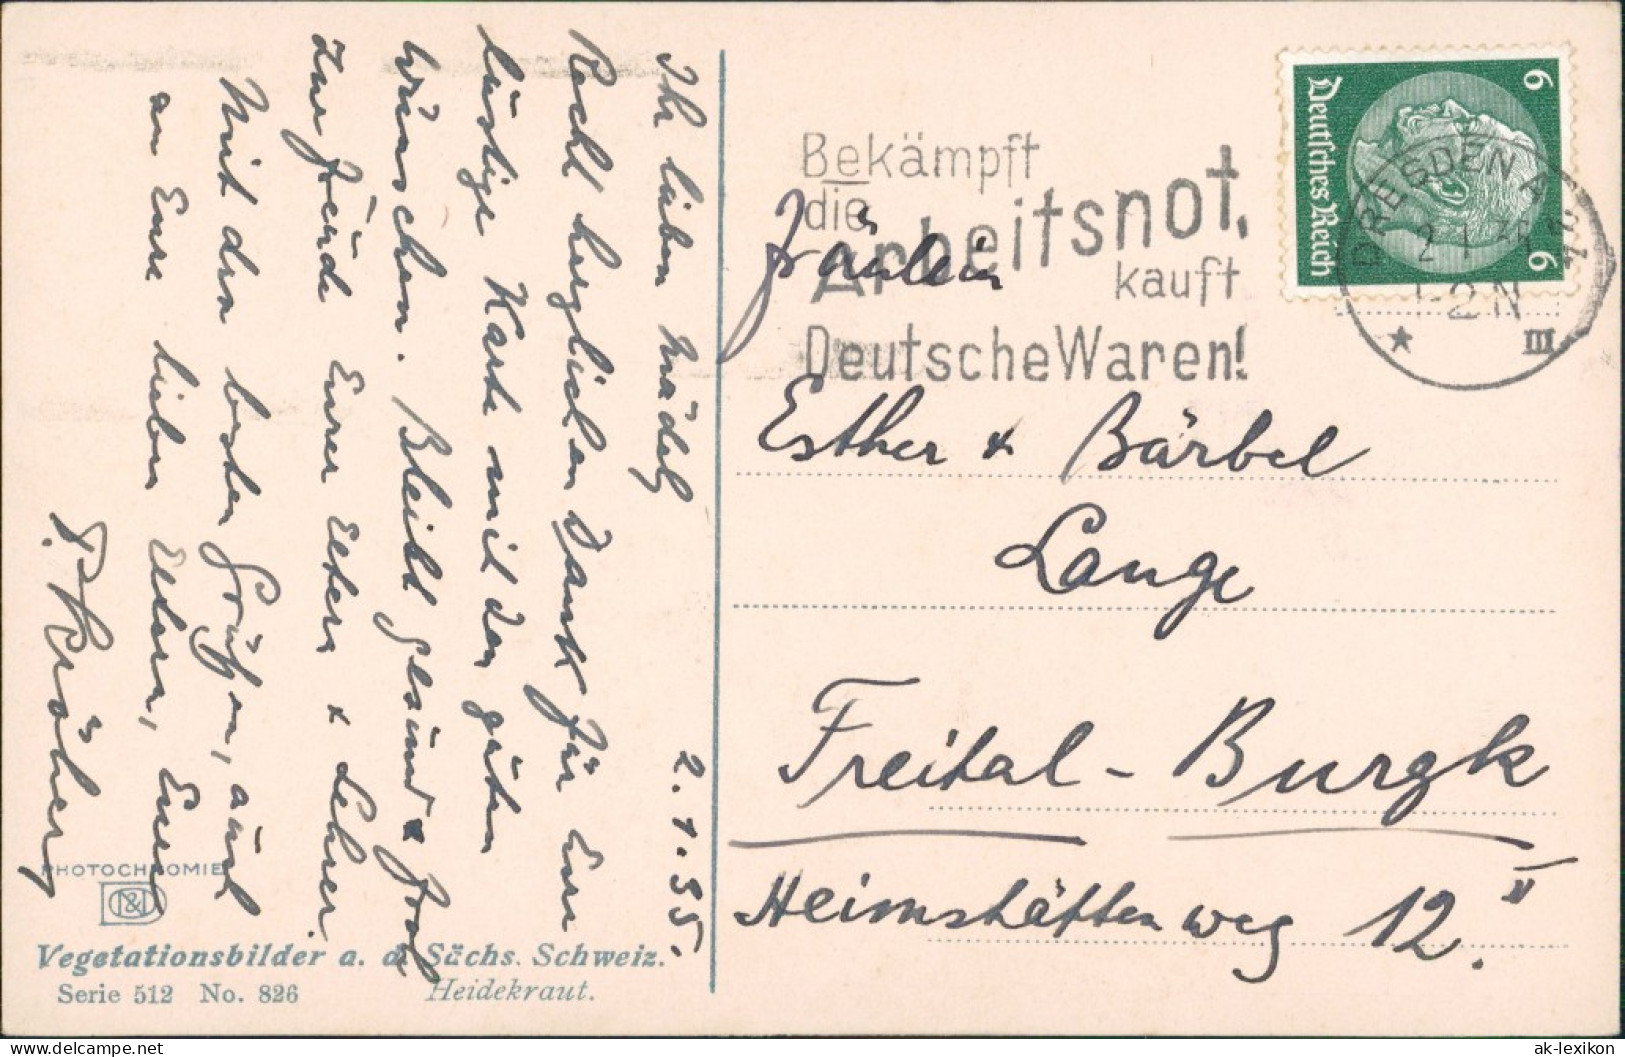 2.1.35.
Ihr lieben Mädel,
Recht herzlichen Dank für Eure
lustige Karte mit den guten
Wünschen. Bleibt gesund & froh
zur Freude Eurer Eltern & Lehrer.
Mit den besten Grüßen, auch
an Eure lieben Eltern, Euer
PHOTOCHROMIE
Vegetationsbilder a. d. Sächs. Schweiz.
Serie 512 No. 826 Heidekraut.
Bekämpft
die
Arbeitsnot,
kauft
Deutsche Waren!
6 6
Deutsches Reich
DRESDEN A 24
2.1.35
1-2N
* III
Fräulein
Esther & Bärbel
Lange
Freital - Burgk
Heimstättenweg 12. II
www.delcampe.net ak-lexikon